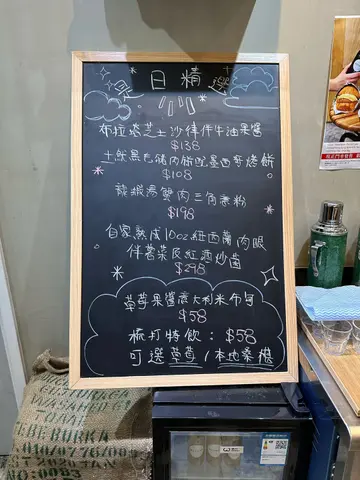 是日精選
布拉塔芝士沙律伴牛油果醬
$138
士紋黑毛豬肉腩配墨西哥烤餅
$108
龍蝦湯蟹肉三角意粉
$198
自家熟成10oz紐西蘭肉眼
伴薯菜及紅酒炒菌
$298
草莓果醬意大利米布甸
$58
梳打特飲：$58
可選草莓/本地桑椹
WASHED G1
010/0776/00
2020 JAN
NO:0083